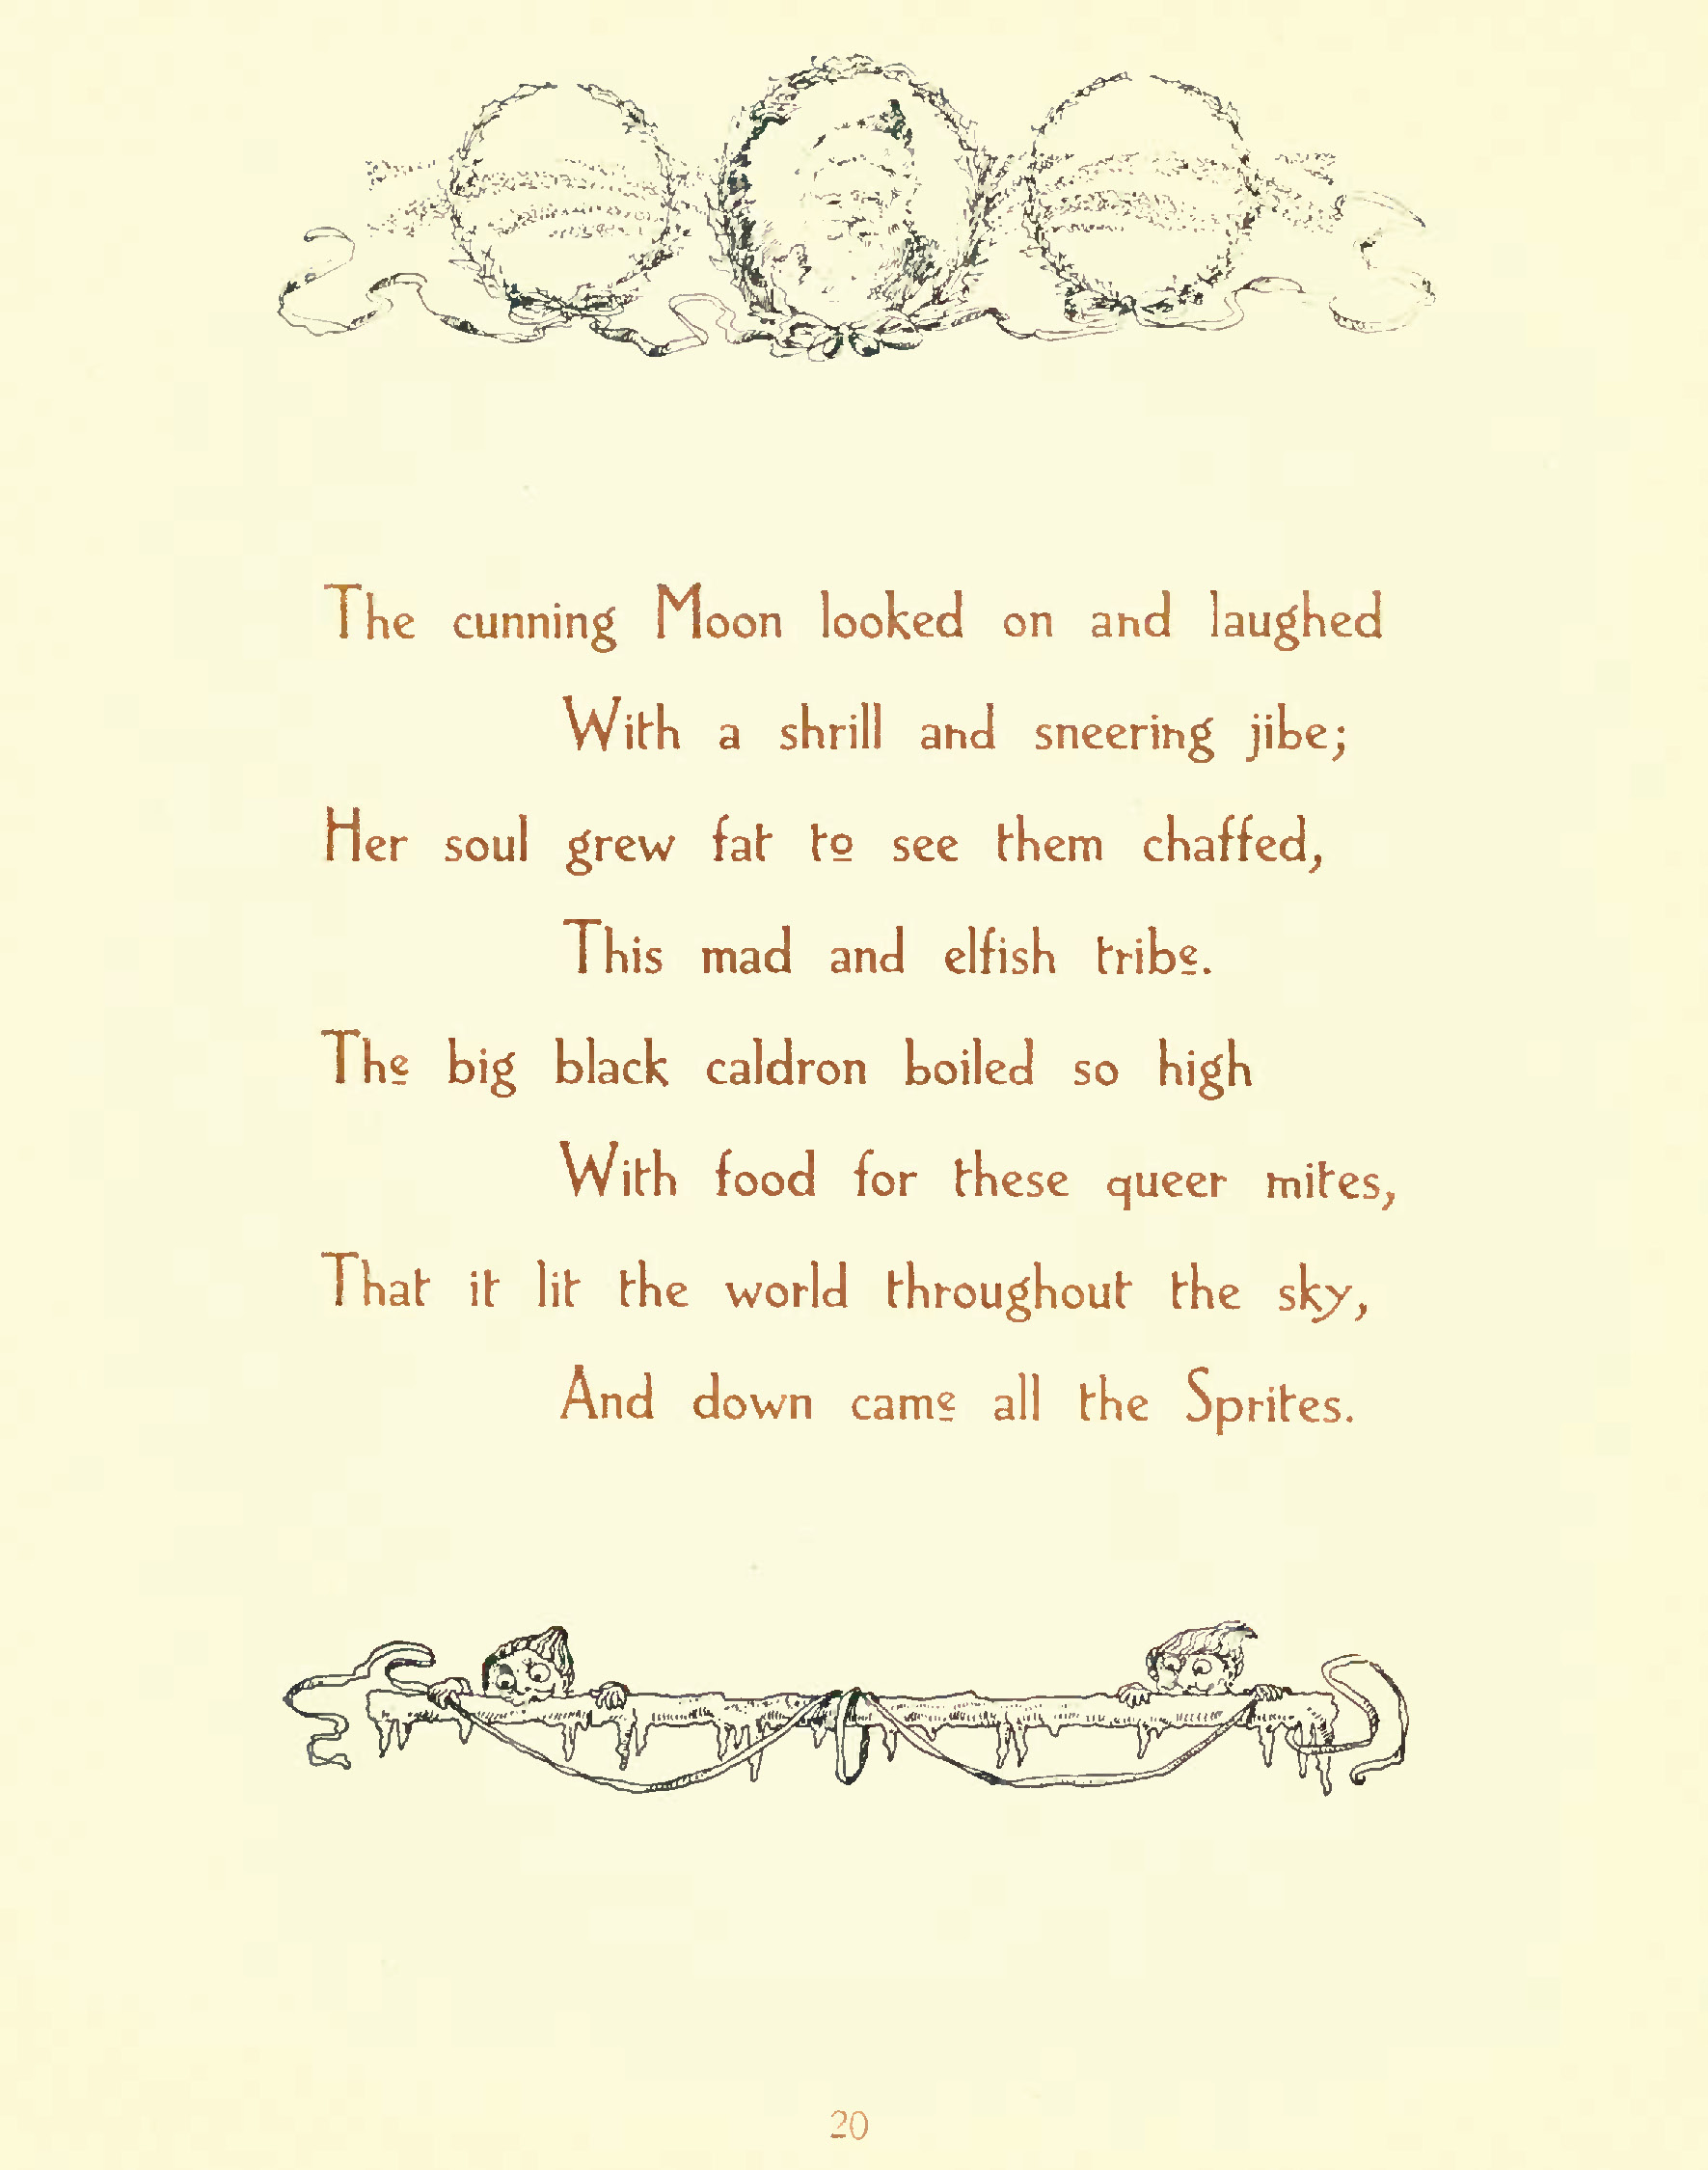 The cunning Moon looked on and laughed
With a shrill and sneering jibe;
Her soul grew fat to see them chaffed,
This mad and elfish tribe.
The big black caldron boiled so high
With food for these queer mites,
That it lit the world throughout the sky,
And down came all the Sprites.
20